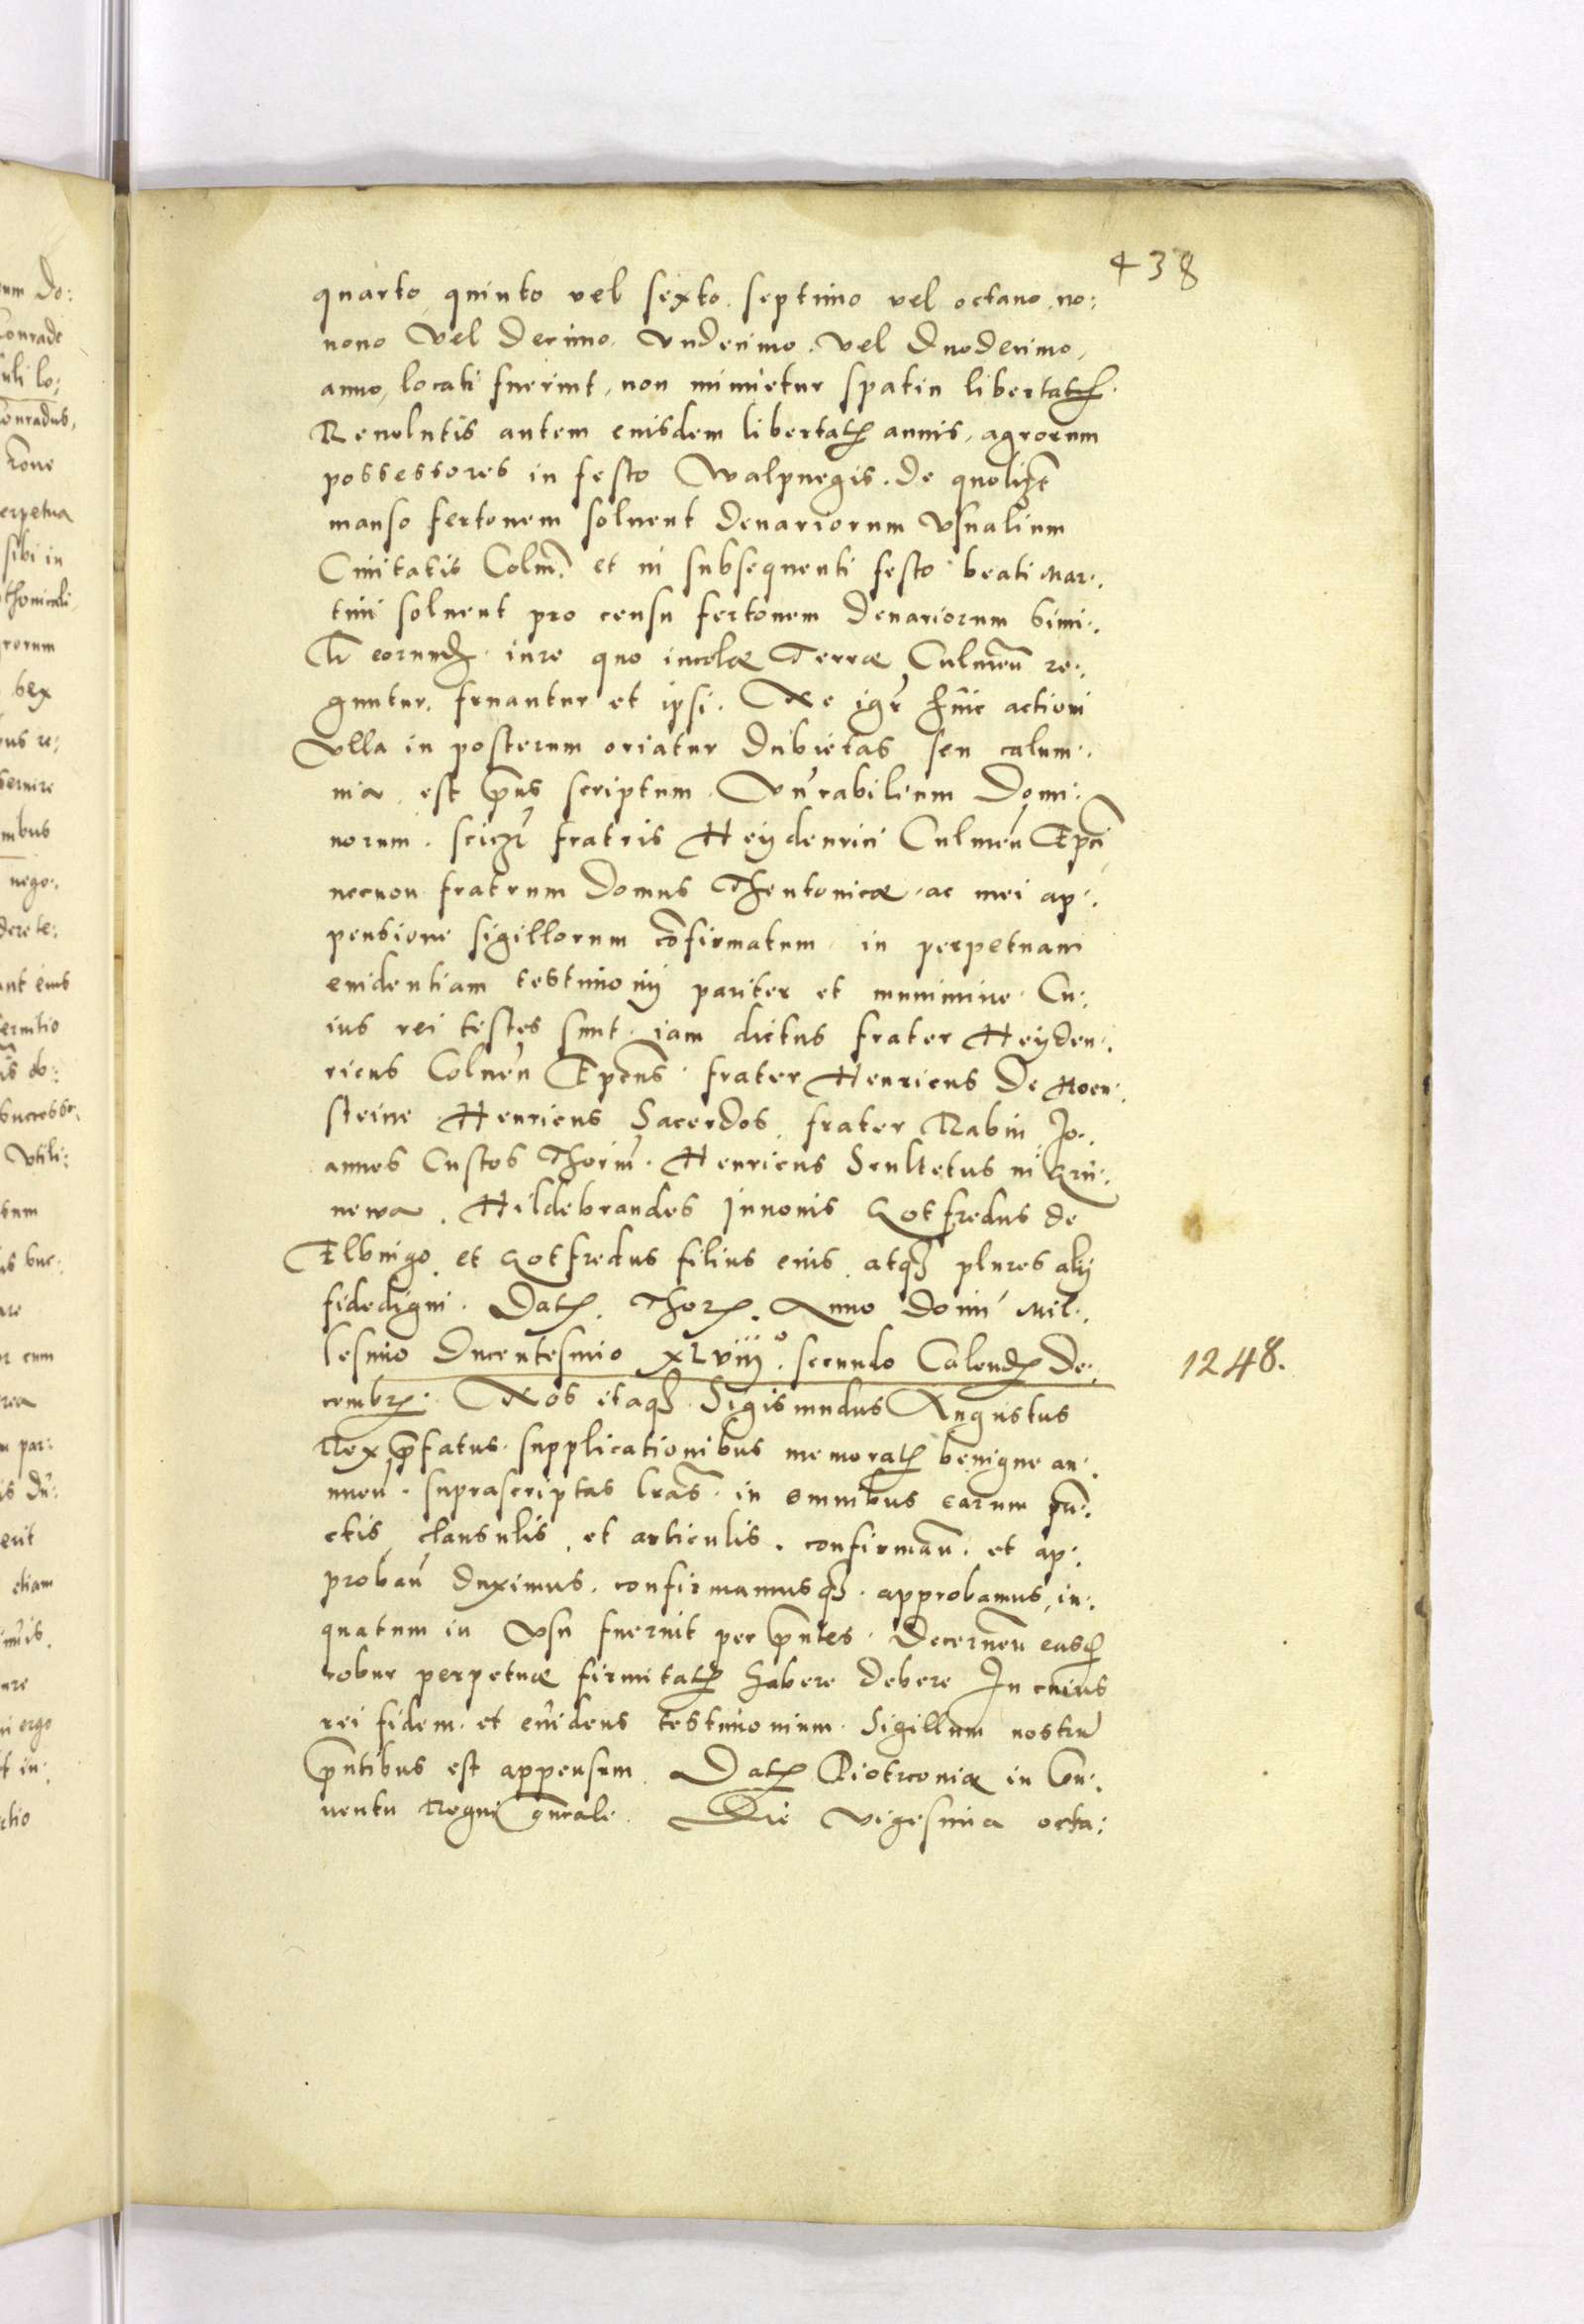 438
quarto, quinto vel sexto. septimo vel octauo, no:
nono Vel decimo, vndecimo. vel duodecimo,
anno, locati fuerint, non minuetur spatiu libertatꝭ.
Reuolutis autem euisdem libertatꝭ annis, agrorum
possessores in festo Walpurgis. de quolibꝫt
manso fertonem soluent denariorum vsualium
Ciuitatis Colmꝰ. et in subsequenti festo beati Mar:
tini soluent pro censu fertonem denariorum simi:
Lr̃ eorundꝫ. iure quo incolæ Terræ Culmeñ re:
guntur. fruantur et ipsi. Ne igr̃ huic actioni
vlla in posterum oriatur dubietas seu calum:
nia. est pñs scriptum. Vn̄rabilium Domi:
norum. sciczt fratris Heydenrici Culmeñ Epci
necnon fratrum domus Theutonicæ. ac mei ap:
pensione sigillorum cõfirmatum. in perpetuam
euidentiam testimonij pariter et munimine. Cu:
ius rei testes sunt. iam dictus frater Heyden:
ricus Colmeñ Epcus. frater Henricus de Hoen:
steine Henricus Sacerdos. frater Rabin Jo:
annes Custos Thorun̄. Henricus Scultetus in Gru:
newa. Hildebrandes Junonis Gotfredus de
Elbingo et Gotfredus filius eius. atqꝫ plures alij
fidedigni. Datꝭ. Thorꝭ. Anno domi Mil:
lesimo Ducentesimo XLviijº. secundo Calendꝭ De:
cembrꝭ. Nos itaqꝫ. Sigismundus Augustus
Rex p̄fatus. supplicationibus memoratꝭ benigne an:
nueñ. suprascriptas lr̃as. in omnibus earum pũ:
ctis, clausulis, et articulis. confirmañ. et ap:
probañ duximus. confirmamusqꝫ. approbamus, in:
quatum in Vsu fuerint per p̄ntes. Decerneñ easdꝫ
robur perpetuæ firmitatꝭ habere debere In cuius
rei fidem. et euidens testimonium. Sigillum nostrũ
p̄ntibus est appensum. Datꝭ Piotrconiæ in Con:
uentu Regni gn̄rale. Die vigesima octa:
1248.